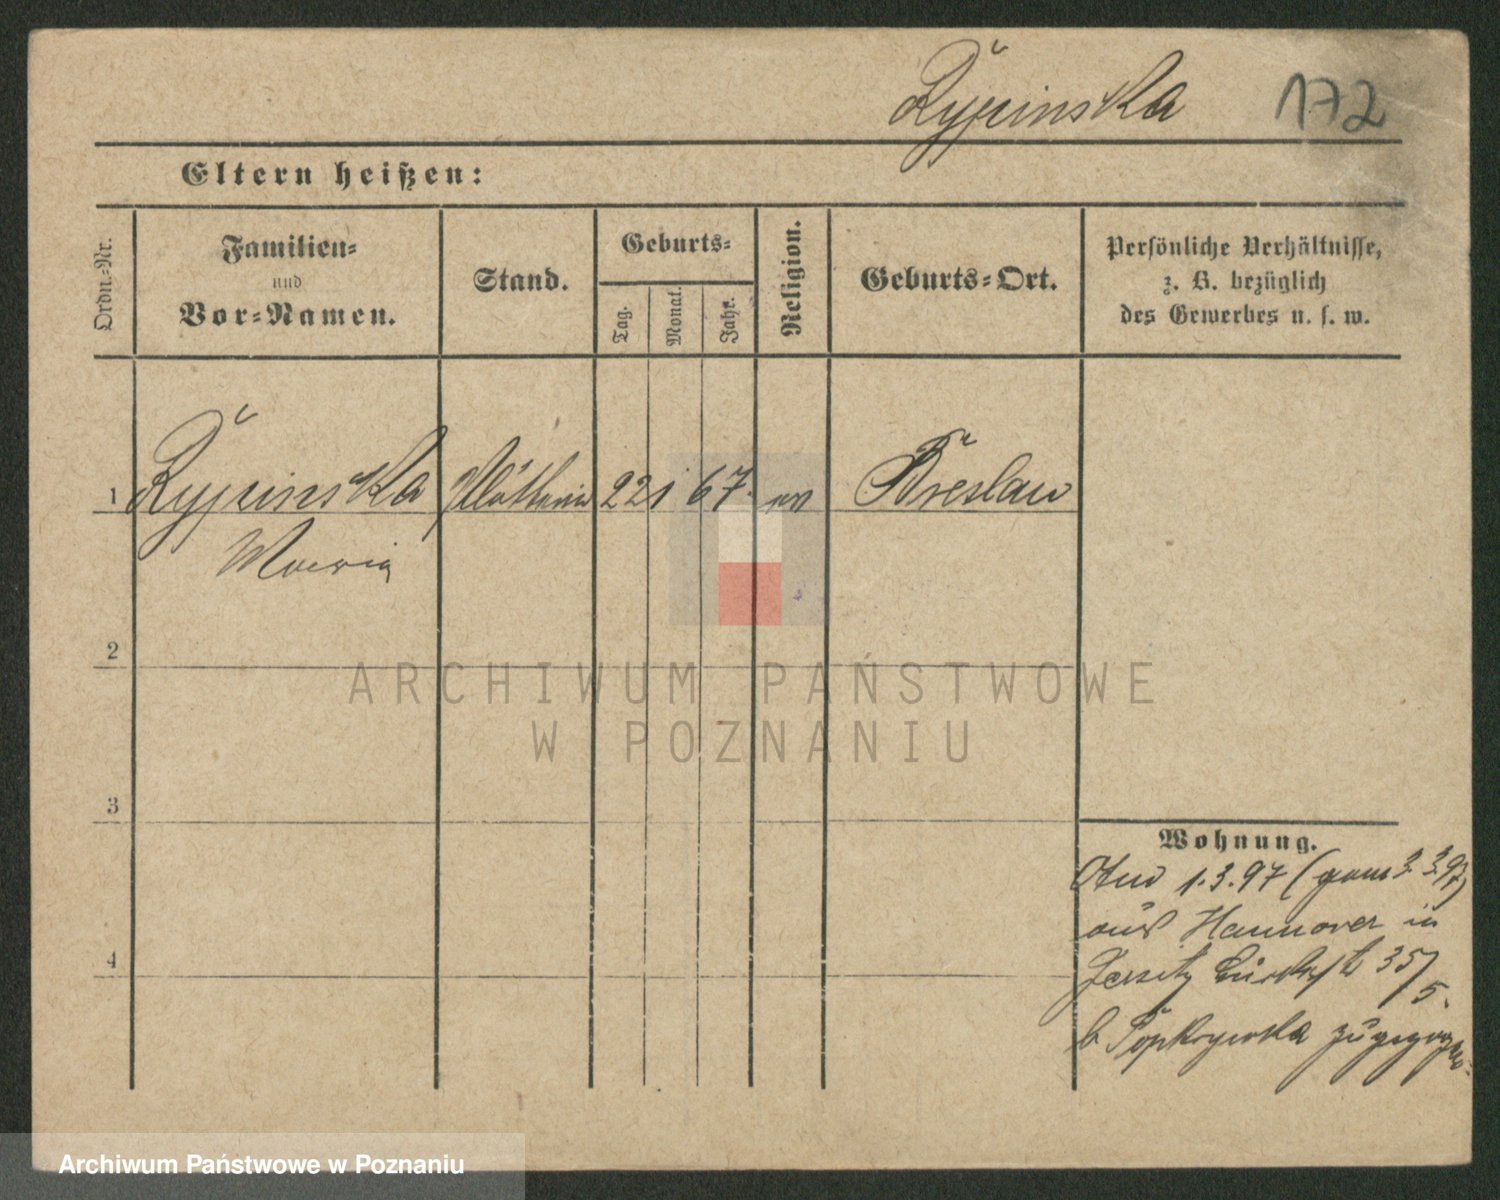 Rypinska 172
Eltern heißen:
Ordn.-Nr.
Familien-
und
Vor-Namen.
Stand.
Geburts-
Tag.
Monat.
Jahr.
Religion.
Geburts-Ort.
Persönliche Verhältnisse,
z. B. bezüglich
des Gewerbes u. s. w.
1 Rypinska 22 1 67. Breslau
Maria
2
ARCHIWUM PAŃSTWOWE
W POZNANIU
3
Wohnung.
1.3.97 (gem 3.3.97)
aus Hannover in
Jersitz 35/
5.
b. zugezogen.
4
Archiwum Państwowe w Poznaniu